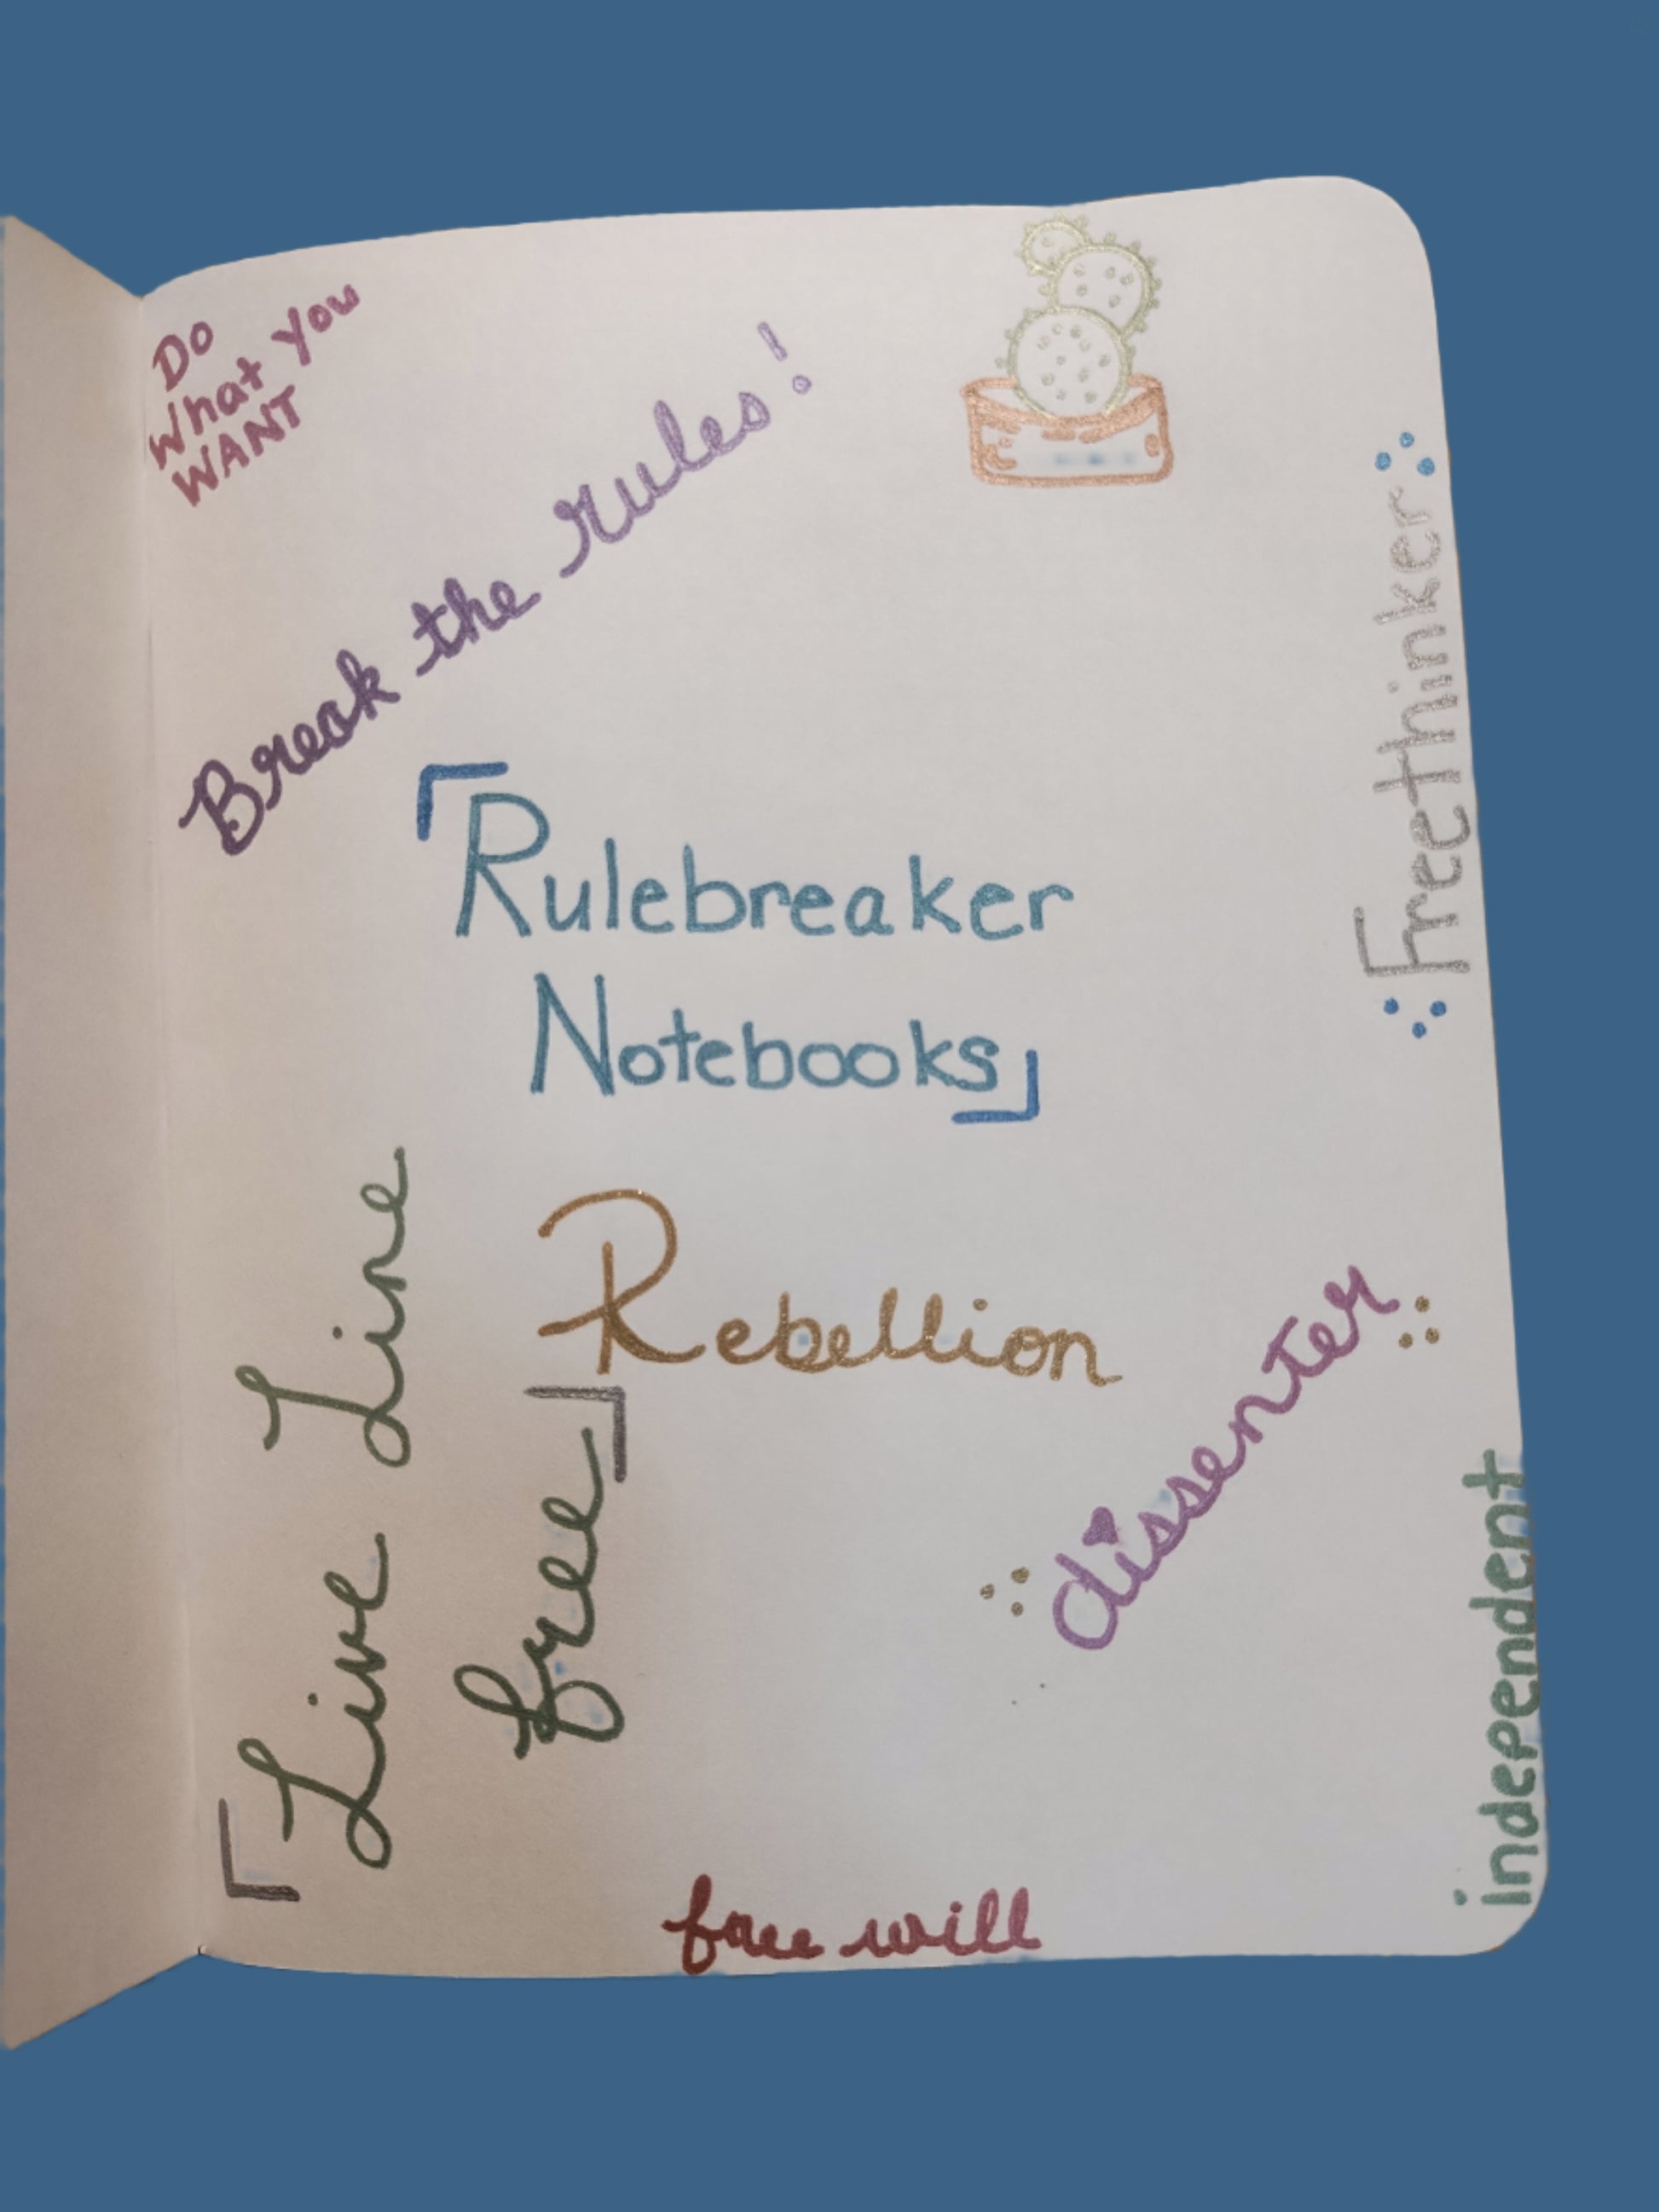 Do
What you
WANT
Break the rules!
Freethinker
Rulebreaker
Notebooks
Live Line
free
Rebellion
dissenter
independent
free will